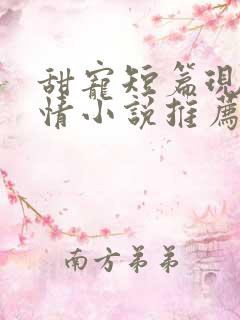 甜寵短篇現
情小說推薦
南方弟弟